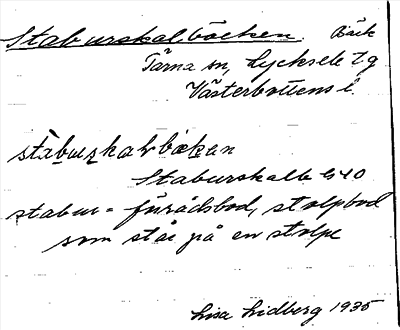 Staburskalbäcken. Bäck
Tärna sn, Lycksele tg
Västerbottens l.
stàbu̱ṟskalvbäkan
Staburskalb G40
stabur = förådsbod, stolpbod
som står på en stolpe
Lisa Lidberg 1935